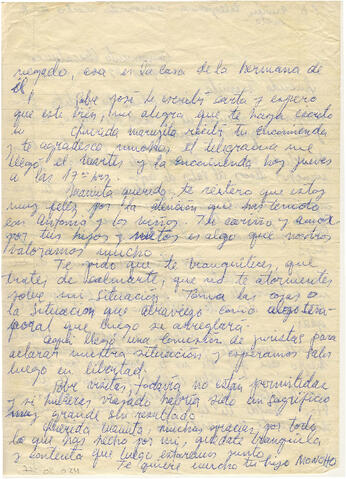 negado, esa es la casa de la hermana de
él.
Sobre José te escribí carta y espero
que esté bien, me alegra que te haya escrito
tu querida mamyita recibí tu encomienda
y te agradezco muchos el telegrama me
llegó el martes y la encomienda hoy jueves
a las 17 hrs.
Mamita querida, te reitero que estoy
muy feliz por la atención que has tenido
con Antonio y los niños. Tu cariño y amor
por tus hijos y nietos es algo que nosotros
valoramos mucho.
Te pido que te tranquilices, que
trates de calmarte, que no te atormentes
sobre mi situación. Toma las cosas o
la situación que atravieso como algo tem-
poral que luego se arreglará.
Aquí llegó una comisión de juristas para
aclarar nuestra situación y esperamos salir
luego en libertad.
Sobre visitas, todavía no están permitidas
y si hubieras viajado habría sido un sacrificio
muy grande sin resultado.
Querida mamita, muchas gracias por todo
lo que has hecho por mí, quédate tranquila
y contenta que luego estaremos juntos.
Te quiere mucho tu hijo MONCHO